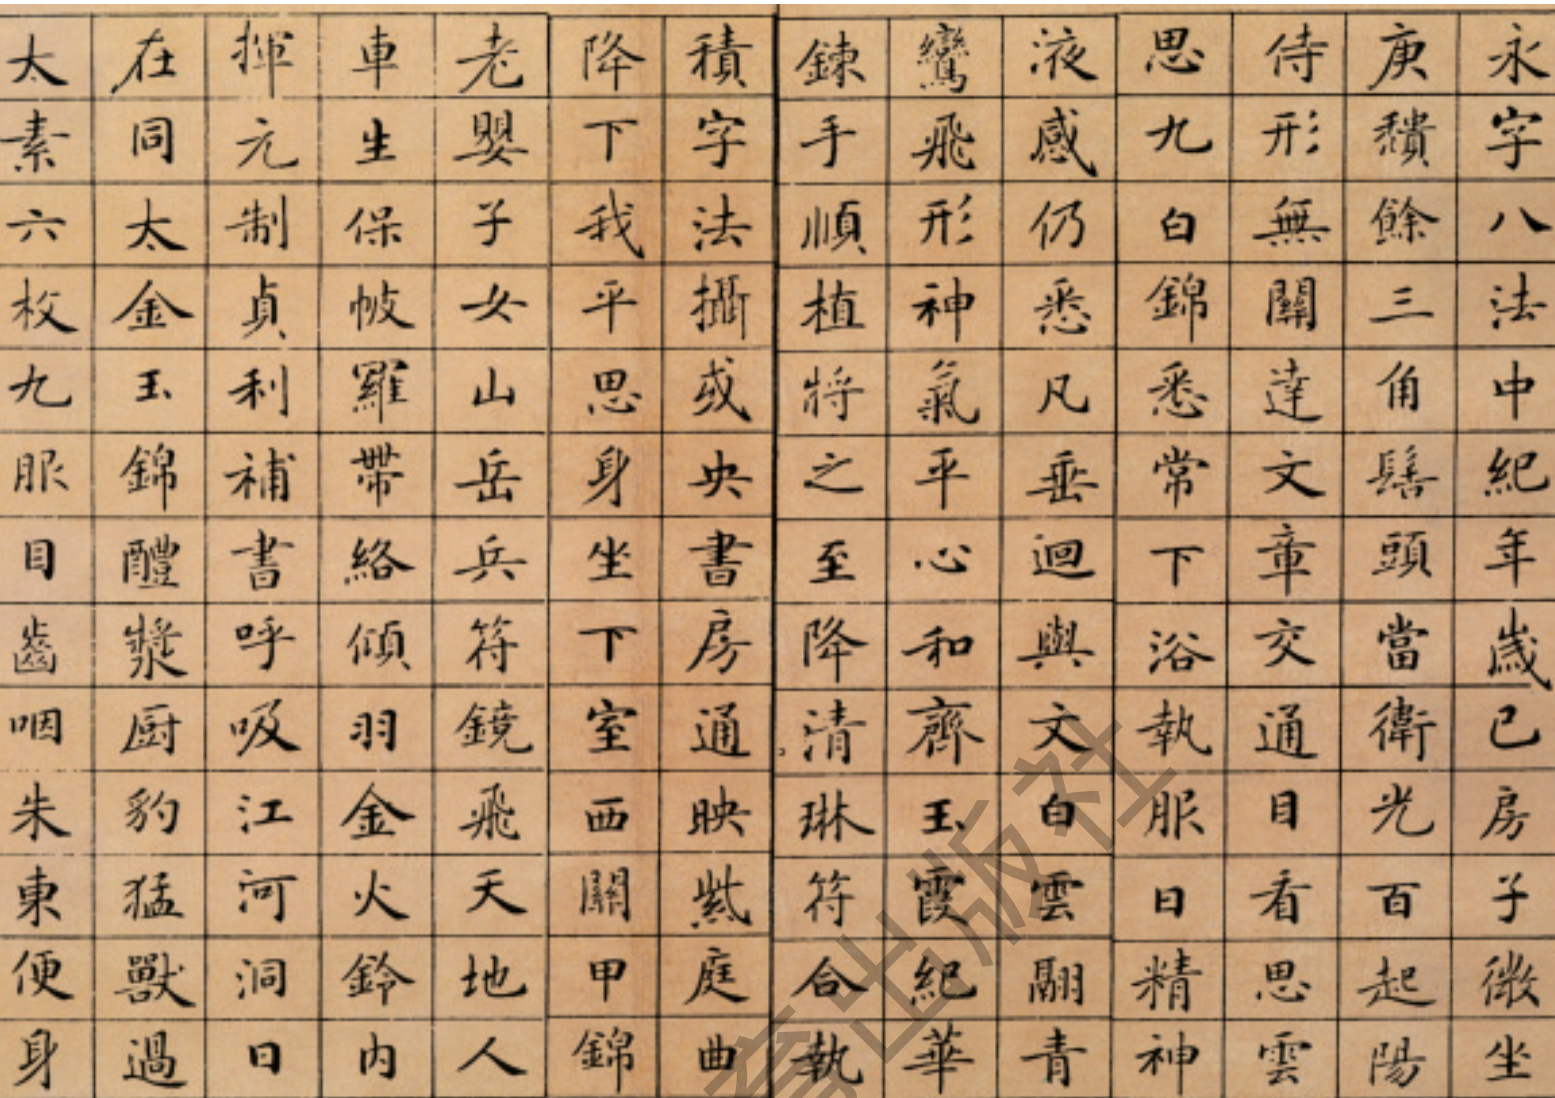 永字八法中紀年歲已房子微坐
庚穨餘三角髻頭當衛光百起陽
侍形無關達文章交通目看思雲
思九白錦悉常下浴執服日精神
液感仍悉凡垂迴與文白雲翮青
鸞飛形神氣平心和齊玉霞紀華
鍊手順植將之至降清琳符合執
積字法攝或央書房通映紫庭曲
降下我平思身坐下室西關甲錦
老嬰子女山岳兵符鏡飛天地人
車生保帔羅帶絡傾羽金火鈴內
揮元制貞利補書呼吸江河洞日
在同太金玉錦醴漿厨豹猛獸過
太素六枚九服目齒咽朱東便身
育出版社